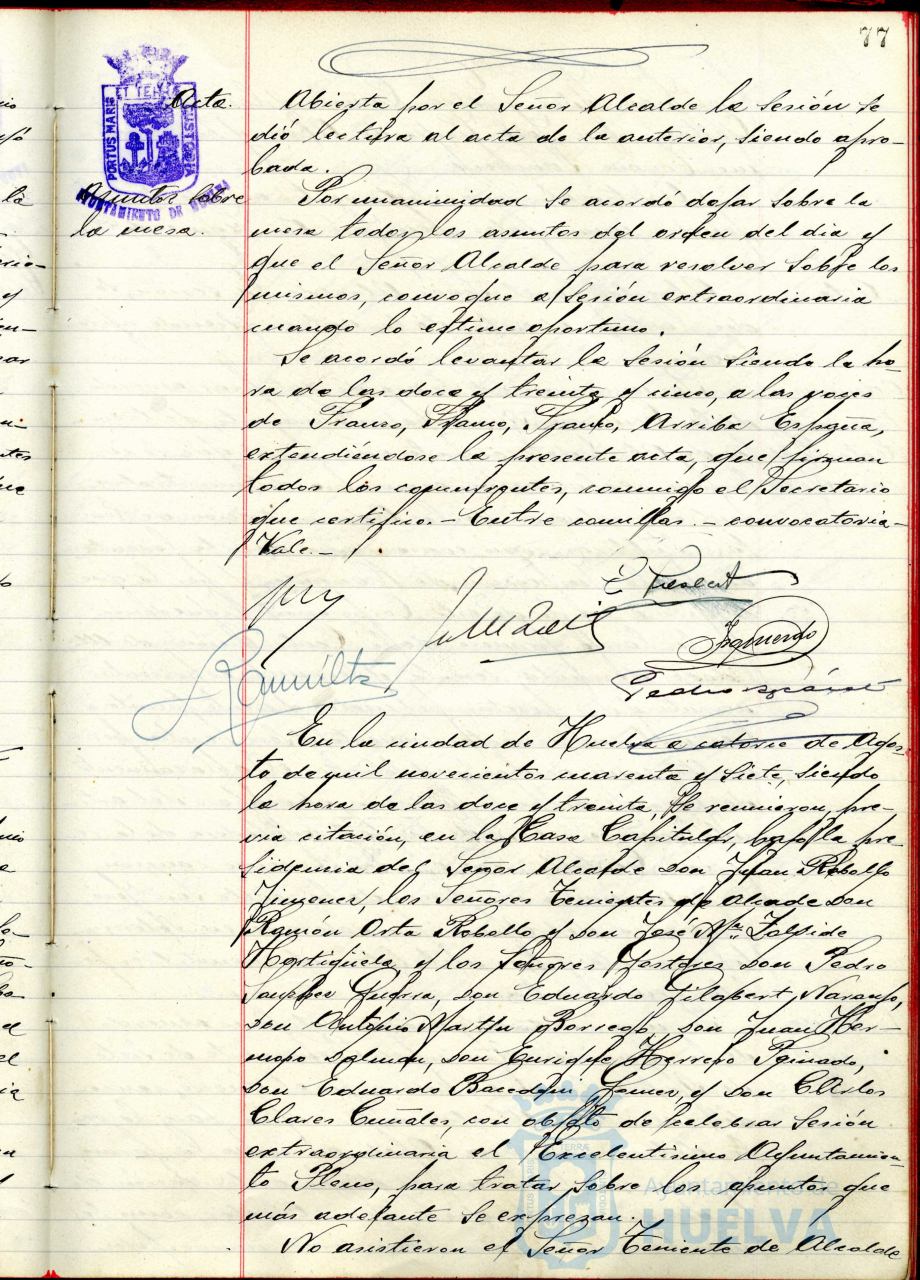 77
Acta.
Abierta por el Señor Alcalde la sesión se
dió lectura al acta de la anterior, siendo apro-
bada.
PORTUS MARIS ET TERRE CUSTODIA
AYUNTAMIENTO DE HUELVA
Asuntos sobre
la mesa.
Por unanimidad se acordó dejar sobre la
mesa todos los asuntos del orden del dia y
que el Señor Alcalde para resolver sobre los
mismos, convoque a sesión extraordinaria
cuando lo estime oportuno.
Se acordó levantar la sesión siendo la ho-
ra de las doce y treinta y cinco, a las voces
de Franco, Franco, Franco, Arriba España,
extendiéndose la presente acta, que firman
todos los concurrentes, conmigo el Secretario
que certifico. - Entre comillas. - convocatoria -
Vale. -
Izquierdo
Pedro
En la ciudad de Huelva a catorce de Agos-
to, de mil novecientos cuarenta y siete, siendo
la hora de las doce y treinta, se reunieron, pre-
via citación, en la Casa Capitular, bajo la pre-
sidencia del Señor Alcalde Don Juan Rebollo
Jimenez, los Señores Tenientes de Alcalde Don
Ramón Orta Rebollo y Don José Mª. Zalvide
Hortigüela y los Señores Gestores Don Pedro
Guerra, Don Eduardo Gilabert Naranjo,
Don Antonio Martín Borrego, Don Juan Her-
moso Dolman, Don Enrique Herrero Peinado,
Don Eduardo Gomez, y Don Carlos
Clares Cuñales, con objeto de celebrar sesión
extraordinaria el Excelentisimo Ayuntamien-
to Pleno, para tratar sobre los asuntos que
más adelante se expresan.
No asistieron el Señor Teniente de Alcalde
Ayuntamiento de
HUELVA